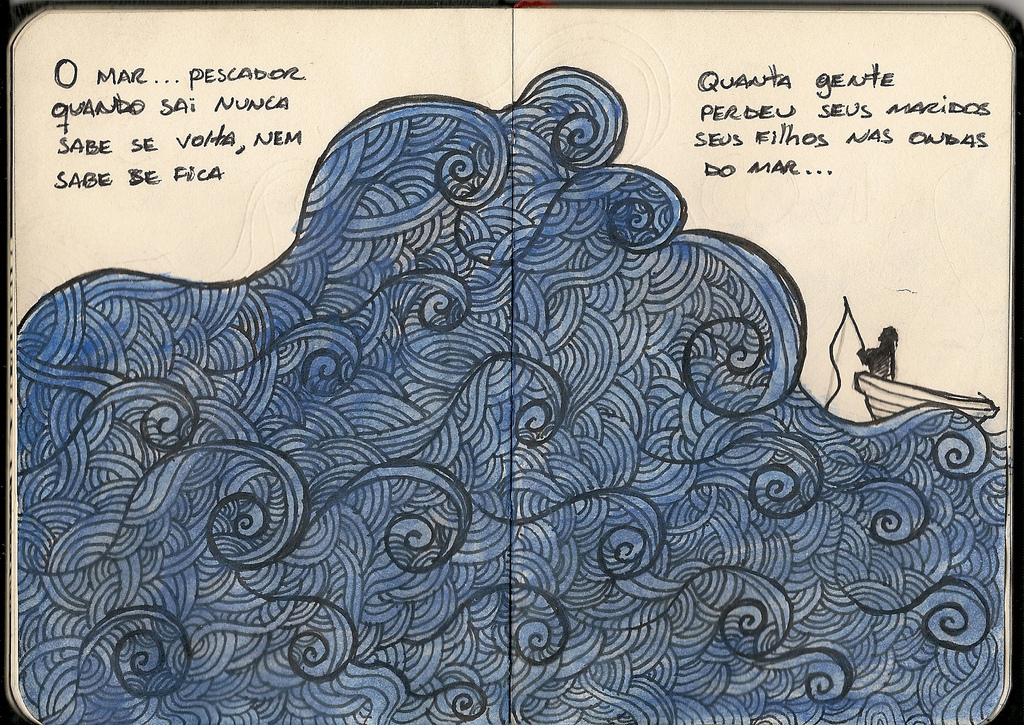 O MAR... PESCADOR
QUANDO SAI NUNCA
SABE SE VOLTA, NEM
SABE SE FICA
QUANTA GENTE
PERDEU SEUS MARIDOS
SEUS FILHOS NAS ONDAS
DO MAR...